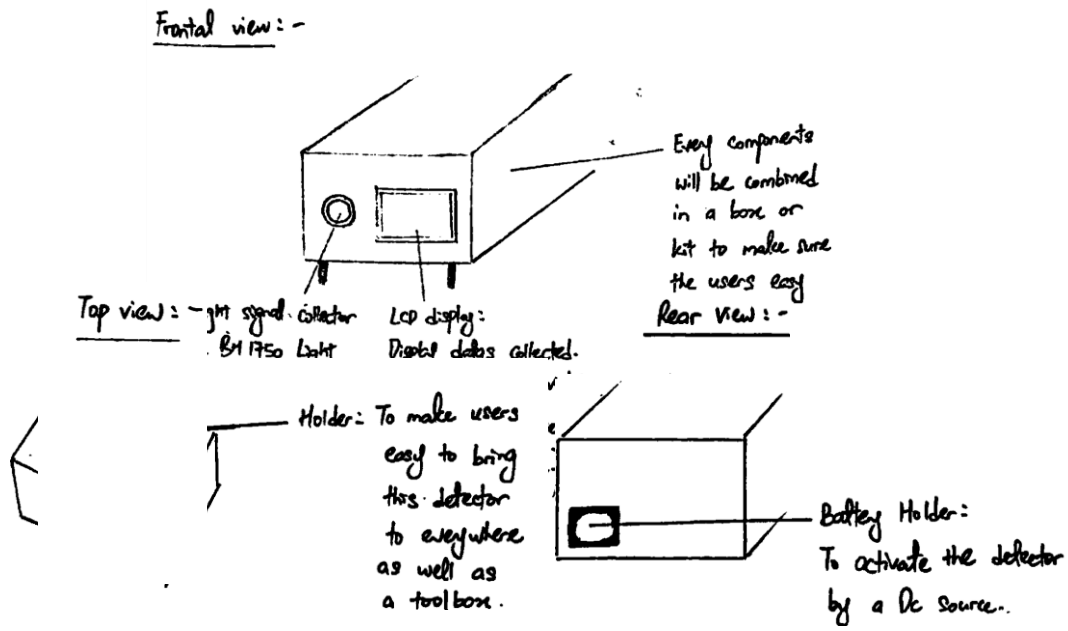 Frontal view: -
Every components
will be combined
in a box or
kit to make sure
the users easy
Top view: -
ght signal collector
BH1750 Light
LCD display:
Disply datas collected.
Rear view: -
Holder: To make users
easy to bring
this detector
to everywhere
as well as
a toolbox.
Battery Holder:
To activate the detector
by a Dc source..